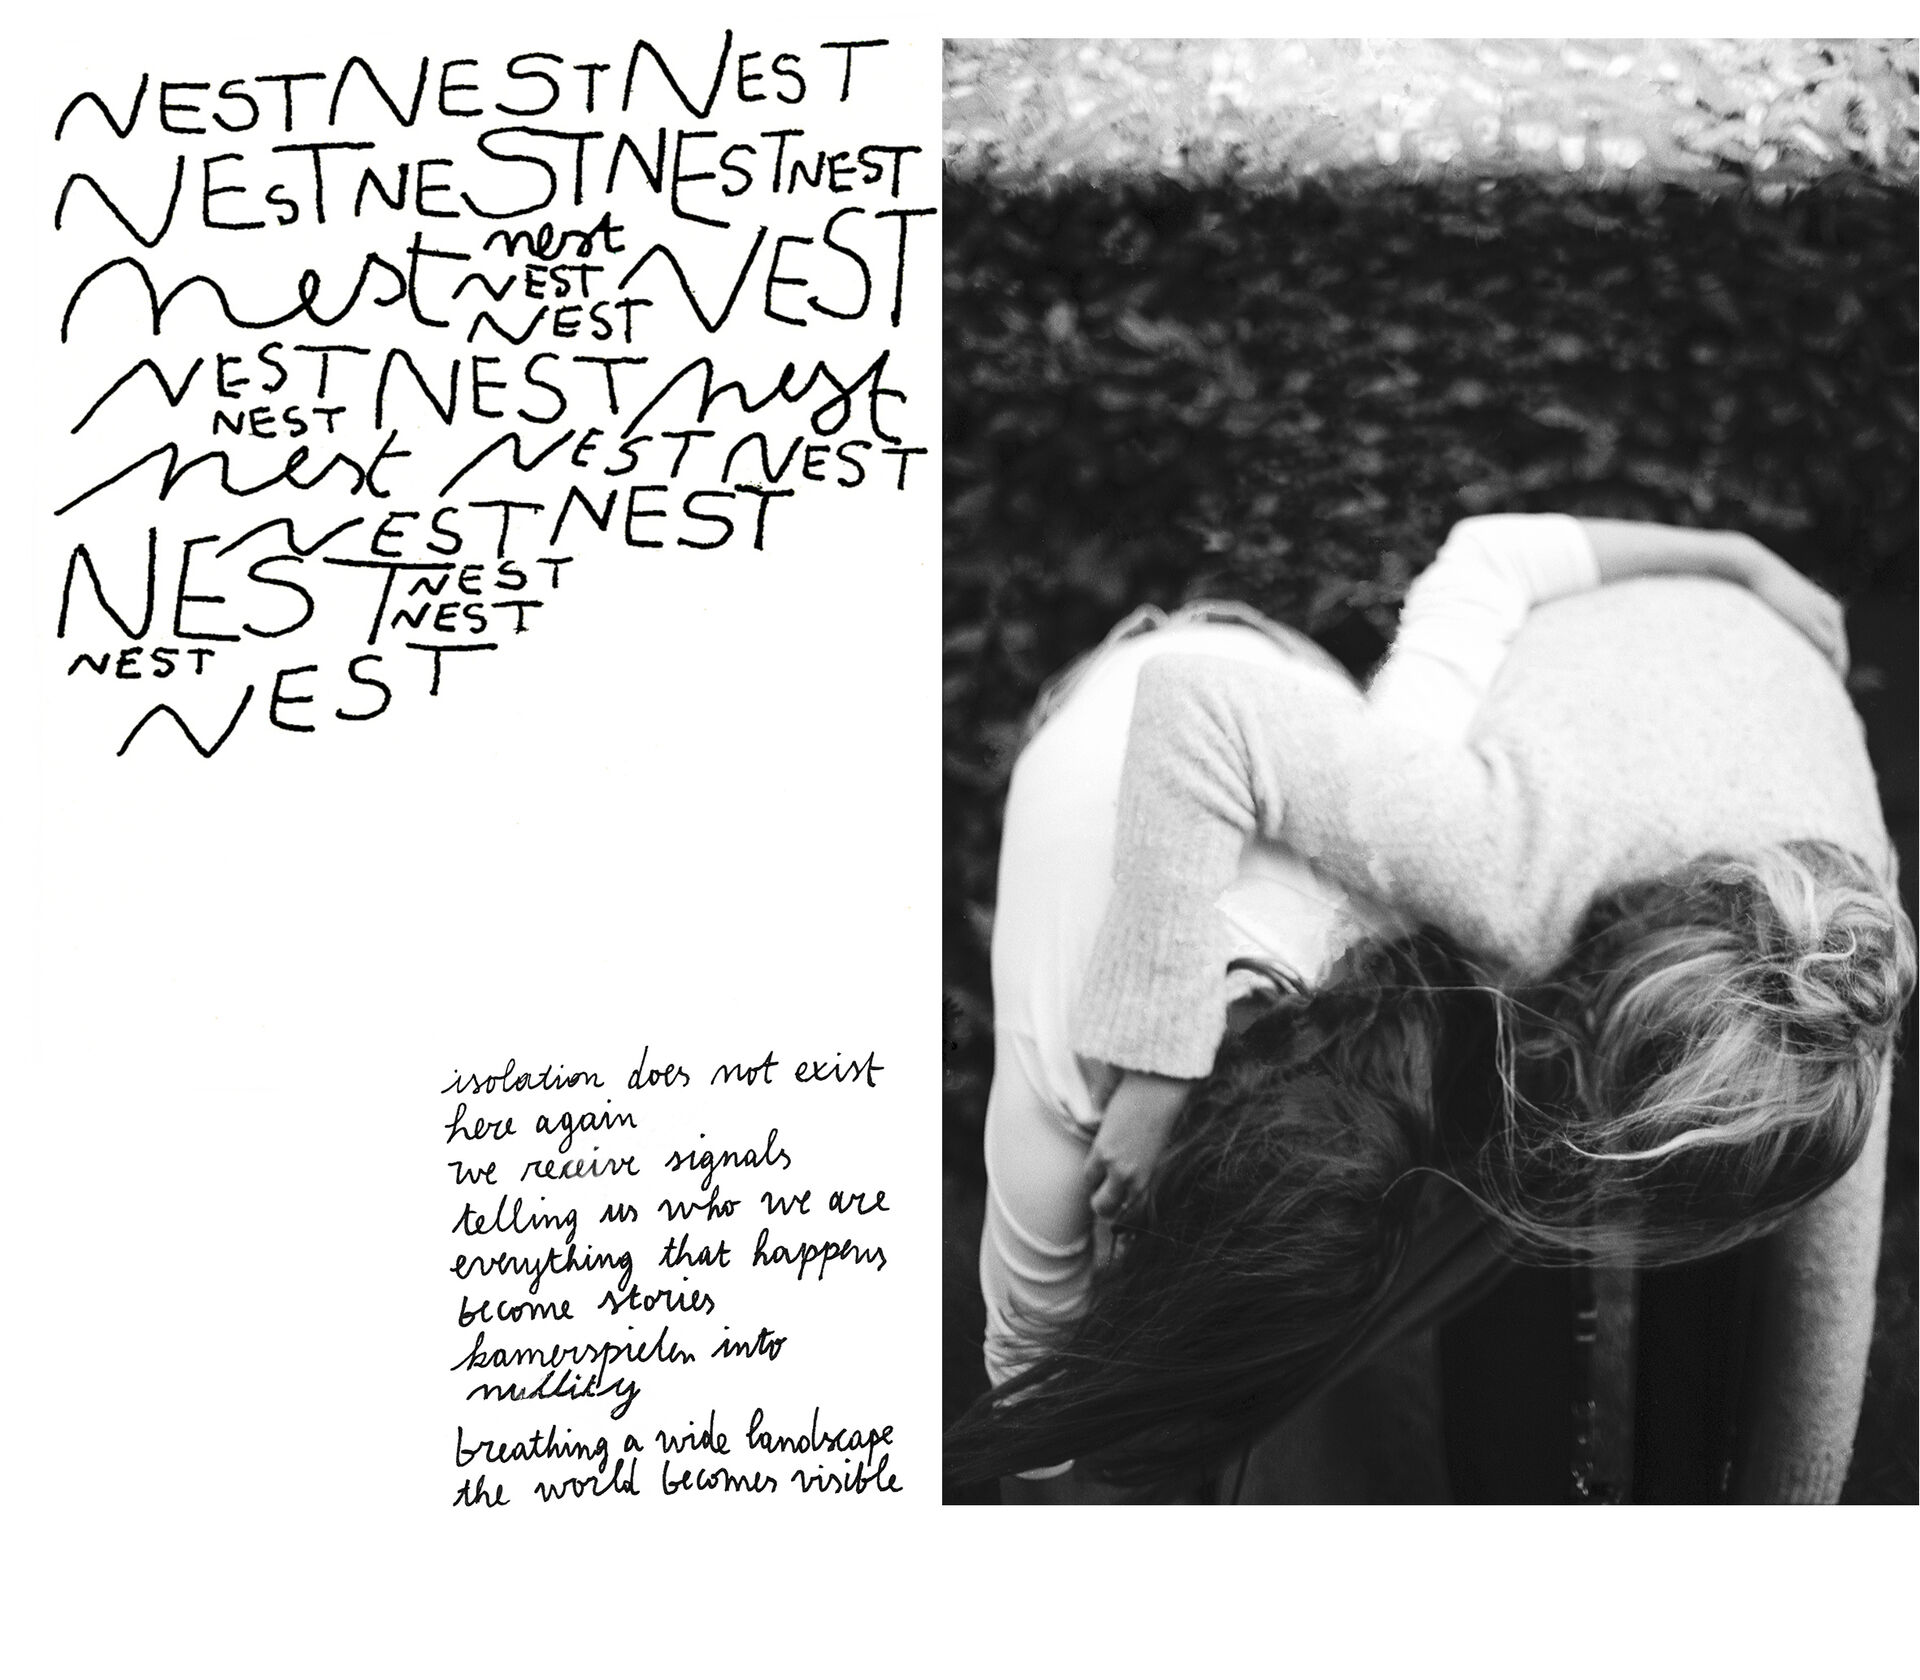 NEST NEST NEST
NEST NEST NEST NEST
nest nest NEST
NEST
NEST
NEST NEST nest
NEST
nest NEST NEST
NEST NEST
NEST NEST
NEST
NEST
NEST
isolation does not exist
here again
we receive signals
telling us who we are
everything that happens
become stories
kamerspielen into
nullity
breathing a wide landscape
the world becomes visible